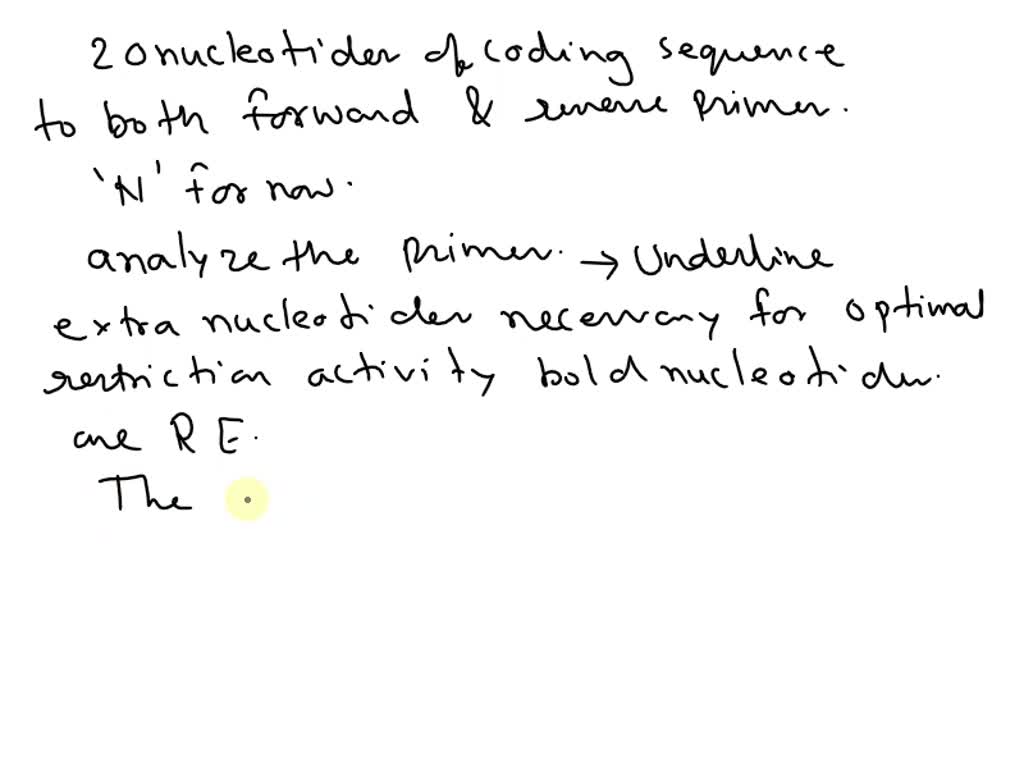 20 nucleotides of coding sequence
to both forward & reverse primer.
'N' for now.
analyze the primer. → Underline
extra nucleotides necessary for optimal
restriction activity bold nucleotides.
are RE.
The